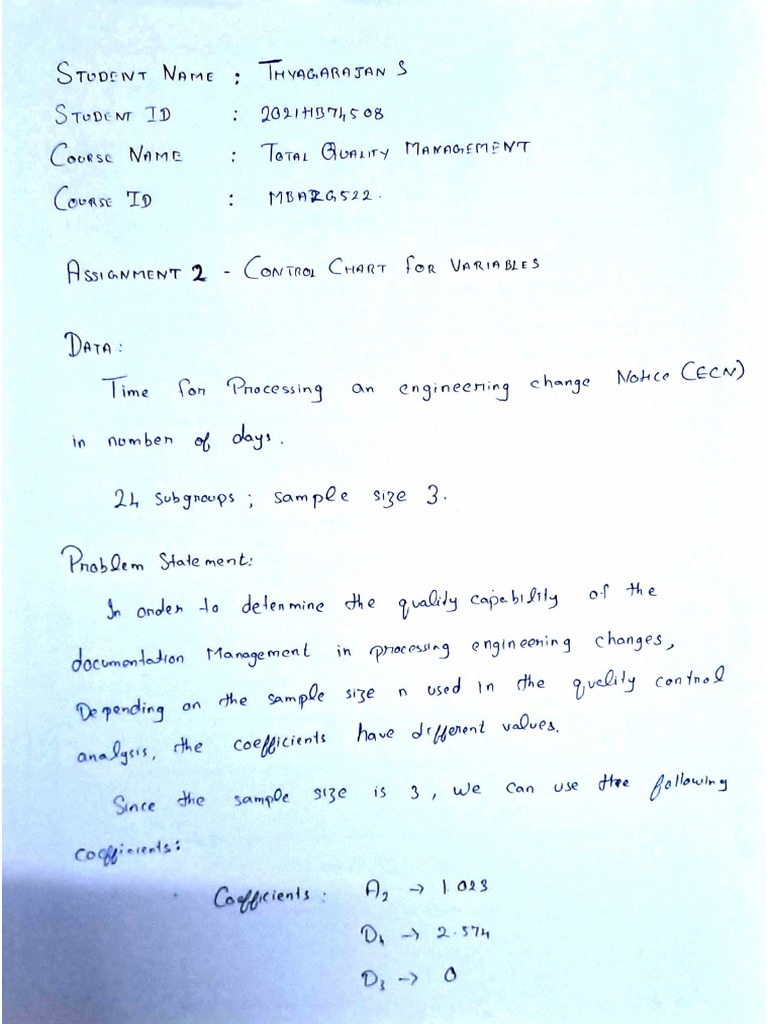 STUDENT NAME : THYAGARAJAN S
STUDENT ID : 2021HB74508
COURSE NAME : TOTAL QUALITY MANAGEMENT
COURSE ID : MBAZG522.
ASSIGNMENT 2 - CONTROL CHART FOR VARIABLES
DATA:
Time for Processing an engineering change Notice (ECN)
in number of days.
24 subgroups ; sample size 3.
Problem Statement:
In order to determine the quality capability of the
documentation Management in processing engineering changes,
Depending on the sample size n used in the quality control
analysis, the coefficients have different values.
Since the sample size is 3, we can use the following
coefficients:
Coefficients : A2 → 1.023
D4 → 2.574
D3 → 0